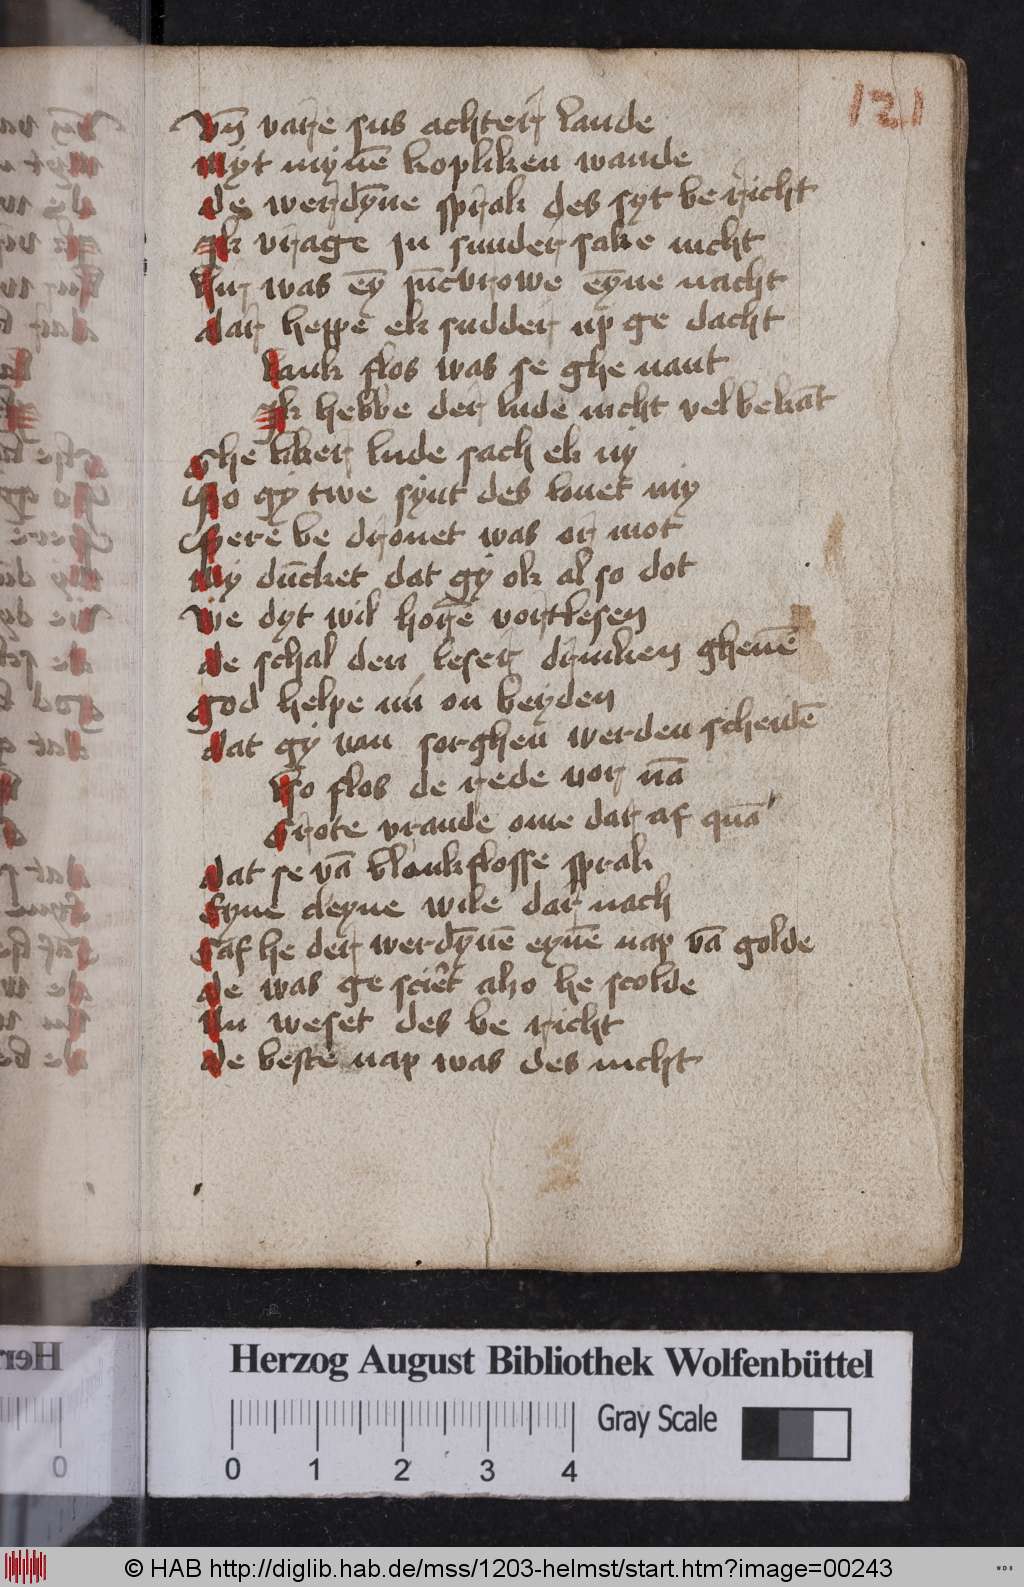 121
vn̄ vare sus achter lande
myt mynē kopliken wande
de werdȳne sprak des syt bericht
ek vrage ju sunder sake nicht
hir was eȳ juncvrowe eȳne nacht
dar heppe ek sudder up ge dacht
blank flos was se ghe nant
ek hebbe der lude nicht vel bekāt
ghe liker lude sach ek ny
so gy twe synt des louet my
sere be drouet was or mot
my dūcket dat gy ok al so dot
we dyt wil horē vort lesen
de schal den leser drinken gheuē
god helpe nu on beyden
dat gy van sorghen werden schendē
do flos de rede vor nā
grote vraude ome dar af quā
dat se vā blankflosse sprak
Eyne cleyne wile dar nach
gaf he der werdȳnē eynē nap vā golde
de was ge scirt also he scolde
nu weset des be richt
de beste nap was des nicht
Herzog August Bibliothek Wolfenbüttel
Gray Scale
0 1 2 3 4
© HAB http://diglib.hab.de/mss/1203-helmst/start.htm?image=00243